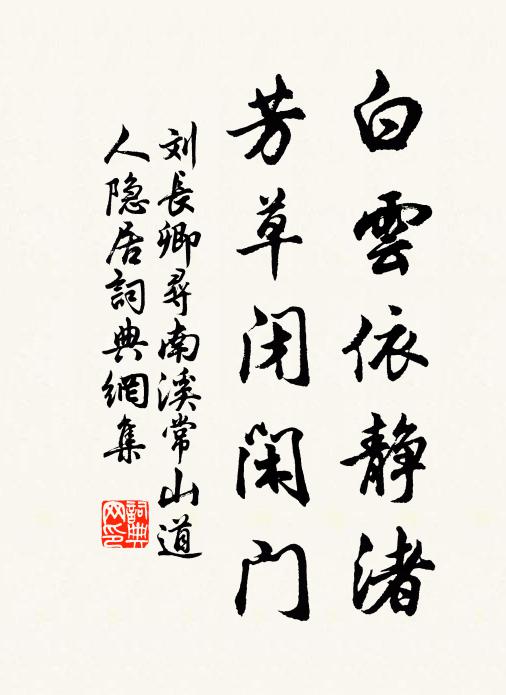 白雲依静渚
芳草闭閑门
刘長卿尋南溪常山道
人隐居詞典網集
詞典网印